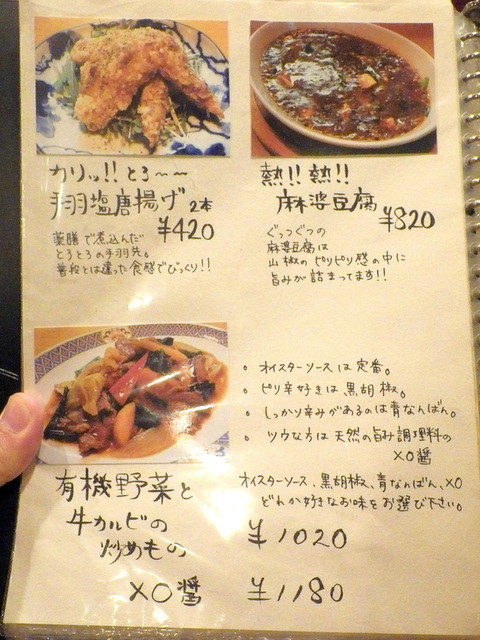 カリッ!! とろ〜〜
手羽塩唐揚げ 2本
¥420
薬膳で煮込んだ
とろとろの手羽先。
普段とは違った食感でびっくり!!
熱!! 熱!!
麻婆豆腐
¥820
ぐつぐつの
麻婆豆腐は
山椒のピリピリ感の中に
旨みが詰まってます!!
• オイスターソースは定番。
• ピリ辛好きは黒胡椒。
• しっかり辛みがあるのは青なんばん。
• ツウな方は天然の旨み調理料の
XO醤
オイスターソース、黒胡椒、青なんばん、XO
どれか好きなお味をお選び下さい。
有機野菜と
牛カルビの
炒めもの
¥1020
XO醤 ¥1180